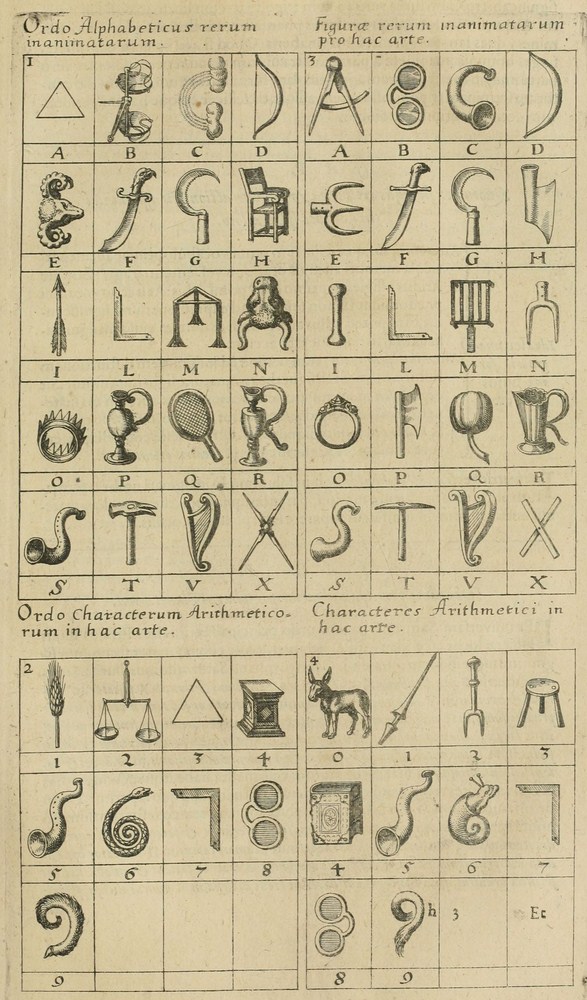 Ordo Alphabeticus rerum
inanimatarum.
1
A B C D
E F G H
I L M N
O. P Q R
S T V X
Figuræ rerum inanimatarum
pro hac arte.
3
A B C D
E F G H
I L M N
O P Q R
S T V X
Ordo Characterum Arithmetico=
rum in hac arte.
2
1 2 3 4
5 6 7 8
9
Characteres Arithmetici in
hac arte.
4
0 1 2 3
4 5 6 7
h 3 Ec
8 9